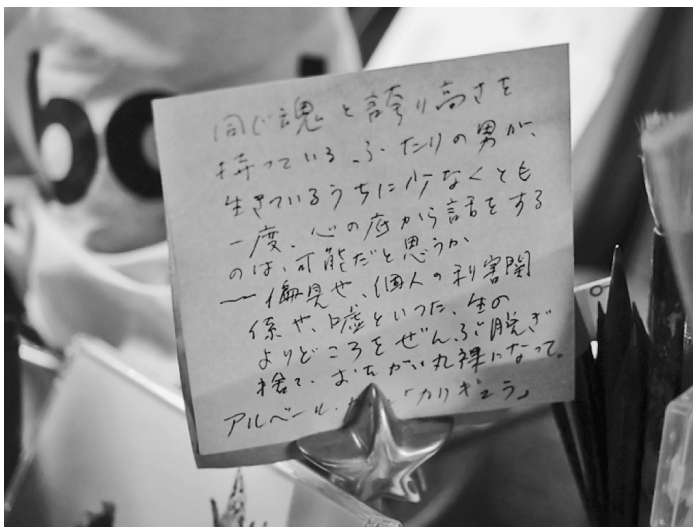 bo
同じ魂と誇り高さを
持っている、ふたりの男が、
生きているうちに少なくとも
一度、心の底から話をする
のは、可能だと思うか
― 偏見や、個人の利害関
係や、嘘といった、生の
よりどころをぜんぶ脱ぎ
捨て、おたがい丸裸になって。
アルベール・ 「カリギュラ」